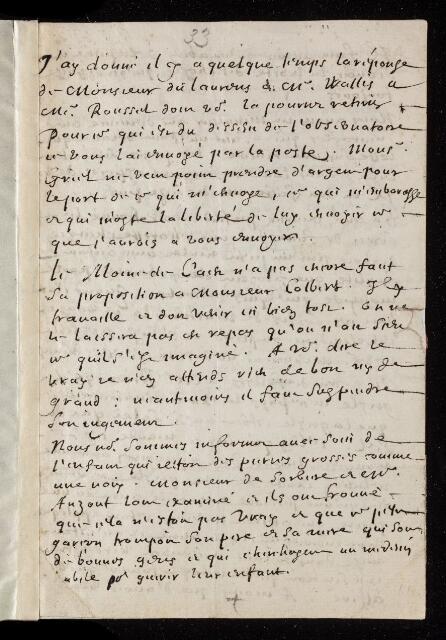 33
J'ay donné il y a quelque temps la réponse
de Monsieur du laurens à Mr. Wallis a
Mr. Roussel dont vo. la pouvez retirer
pour ce qui est du dessein de l'observatoire
je vous l'ai envoyé par la poste. Mons.
ne veut point prendre d'argent pour
le port de ce qu'il m'envoye, ce qui m'embarasse
et qui m'oste la liberté de luy envoyer ce
que j'aurois a vous envoyer.
Le Moine de Caen n'a pas encore faict
sa proposition a Monsieur Colbert Il y
travaille et doit venir ici bien tost. On ne
le laissera pas en repos qu'on n'ait sceu
ce qu'il s'est imaginé. A vo. dire le
vray je n'en attends rien de bon ny de
grand : neantmoins il faut suspendre
son jugement.
Nous no. sommes informez avec soin de
l'enfant qui jettoit des pierres grosses comme
une noix. Monsieur de Sorbiere et Mr.
Auzout l'ont examiné et ils ont trouvé
que cela n'estoit pas vray et que ce petit
garçon trompoit son pere et sa mere qui sont
de bonnes gens et qui cherchoyent un medecin
abile po. guerir leur enfant.